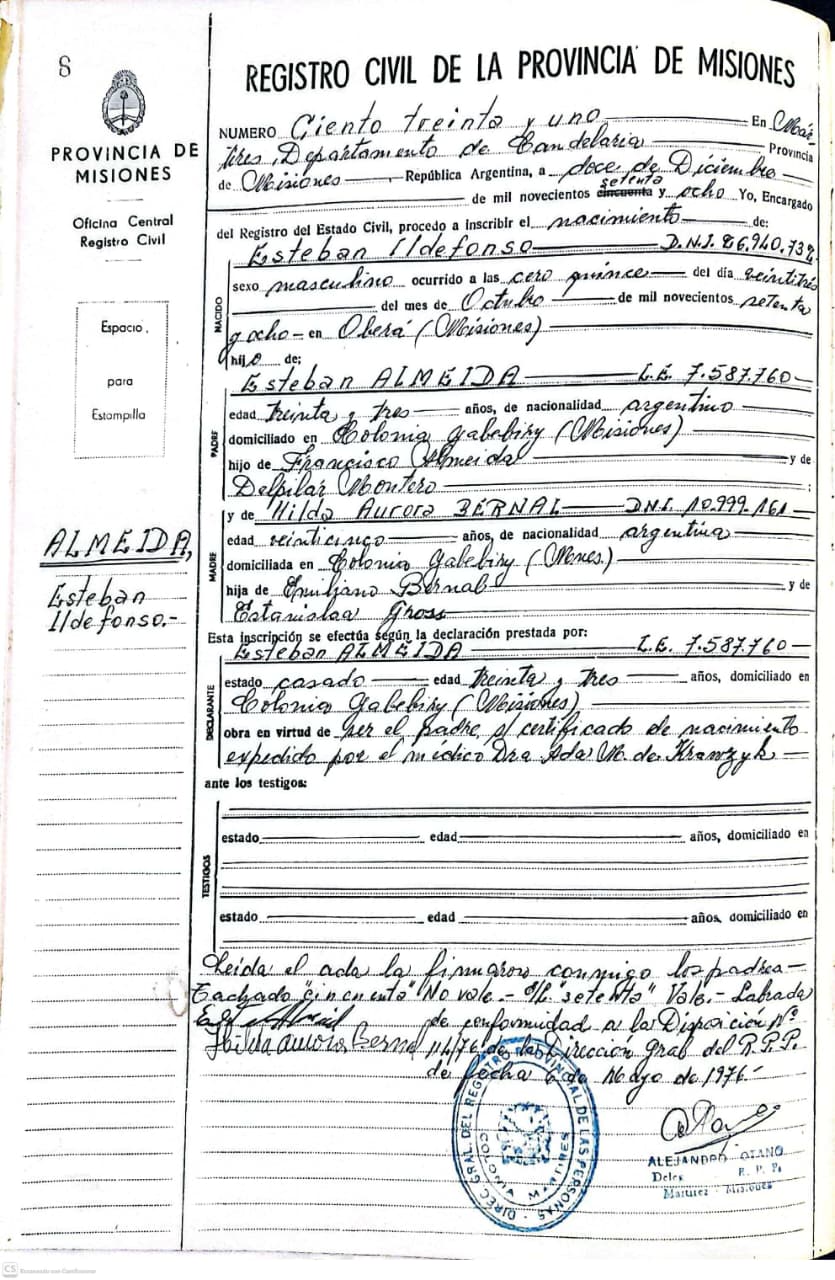 8
PROVINCIA DE
MISIONES
Oficina Central
Registro Civil
Espacio
para
Estampilla
ALMEIDA,
Esteban
Ildefonso.-
REGISTRO CIVIL DE LA PROVINCIA DE MISIONES
NUMERO Ciento treinta y uno En Már-
tires, Departamento de Candelaria Provincia
de Misiones República Argentina, a doce de Diciembre
setenta
de mil novecientos cincuenta y ocho Yo, Encargado
del Registro del Estado Civil, procedo a inscribir el nacimiento de:
Esteban Ildefonso D.N.I. 26.940.732
NACIDO
sexo masculino ocurrido a las cero quince del día veintitrés
del mes de Octubre de mil novecientos setenta
y ocho en Oberá (Misiones)
hijo de;
Esteban ALMEIDA L.E. 7.587.760
PADRE
edad treinta y tres años, de nacionalidad argentino
domiciliado en Colonia Yabebiry (Misiones)
hijo de Francisco Almeida y de
Delpilar Montero ;
y de Hilda Aurora BERNAL D.N.I. 10.999.161
MADRE
edad veinticinco años, de nacionalidad argentina
domiciliada en Colonia Yabebiry (Mnes.)
hija de Emiliano Bernal y de
Estanislaa Gross
Esta inscripción se efectúa según la declaración prestada por:
Esteban ALMEIDA L.E. 7.587.760
DECLARANTE
estado casado edad treinta y tres años, domiciliado en
Colonia Yabebiry (Misiones)
obra en virtud de ser el padre s/ certificado de nacimiento
expedido por el médico Dra Ada M. de Krawzyk
ante los testigos:
TESTIGOS
estado edad años, domiciliado en
estado edad años, domiciliado en
Leída el acta la firmaron conmigo los padres
Tachado "cincuenta" No vale.- E/L "setenta" Vale.- Labrada
de conformidad a la Disposición Nº
Hilda Aurora Bernal 114/76 de la Dirección Gral del R.P.P.
de fecha 6 de Mayo de 1976.-
DIREC. GRAL. DEL REGISTRO PROVINCIAL DE LAS PERSONAS
COLONIA MARTIRES
ALEJANDRO OTANO
R. P. P.
Martires - Misiones
CS Escaneado con CamScanner